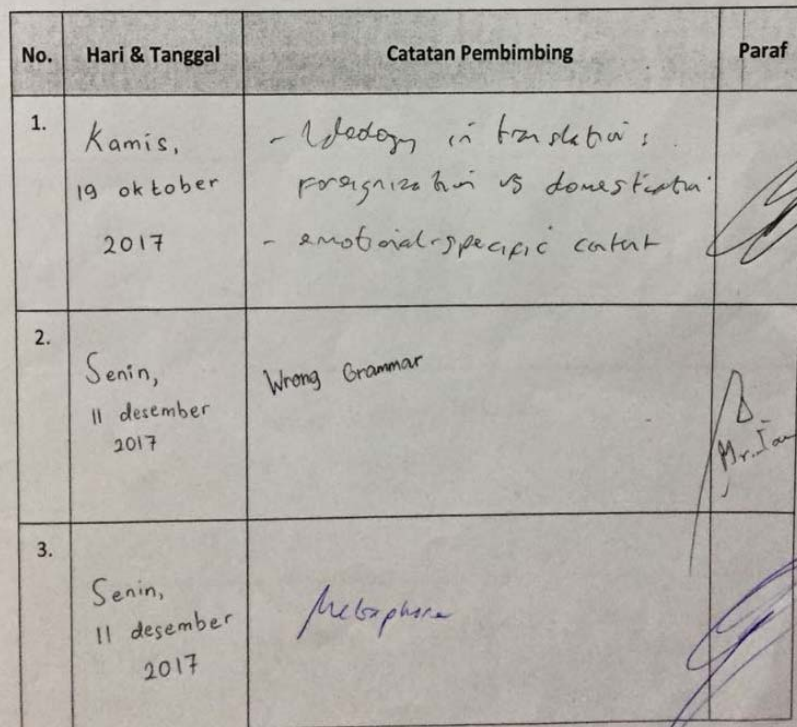 No. Hari & Tanggal Catatan Pembimbing Paraf
1. Kamis,
19 oktober
2017
- Ideology in translation :
foreignization vs domestication
- emotional-specific content
2. Senin,
11 desember
2017
Wrong Grammar
Mr.
3. Senin,
11 desember
2017
Metaphore